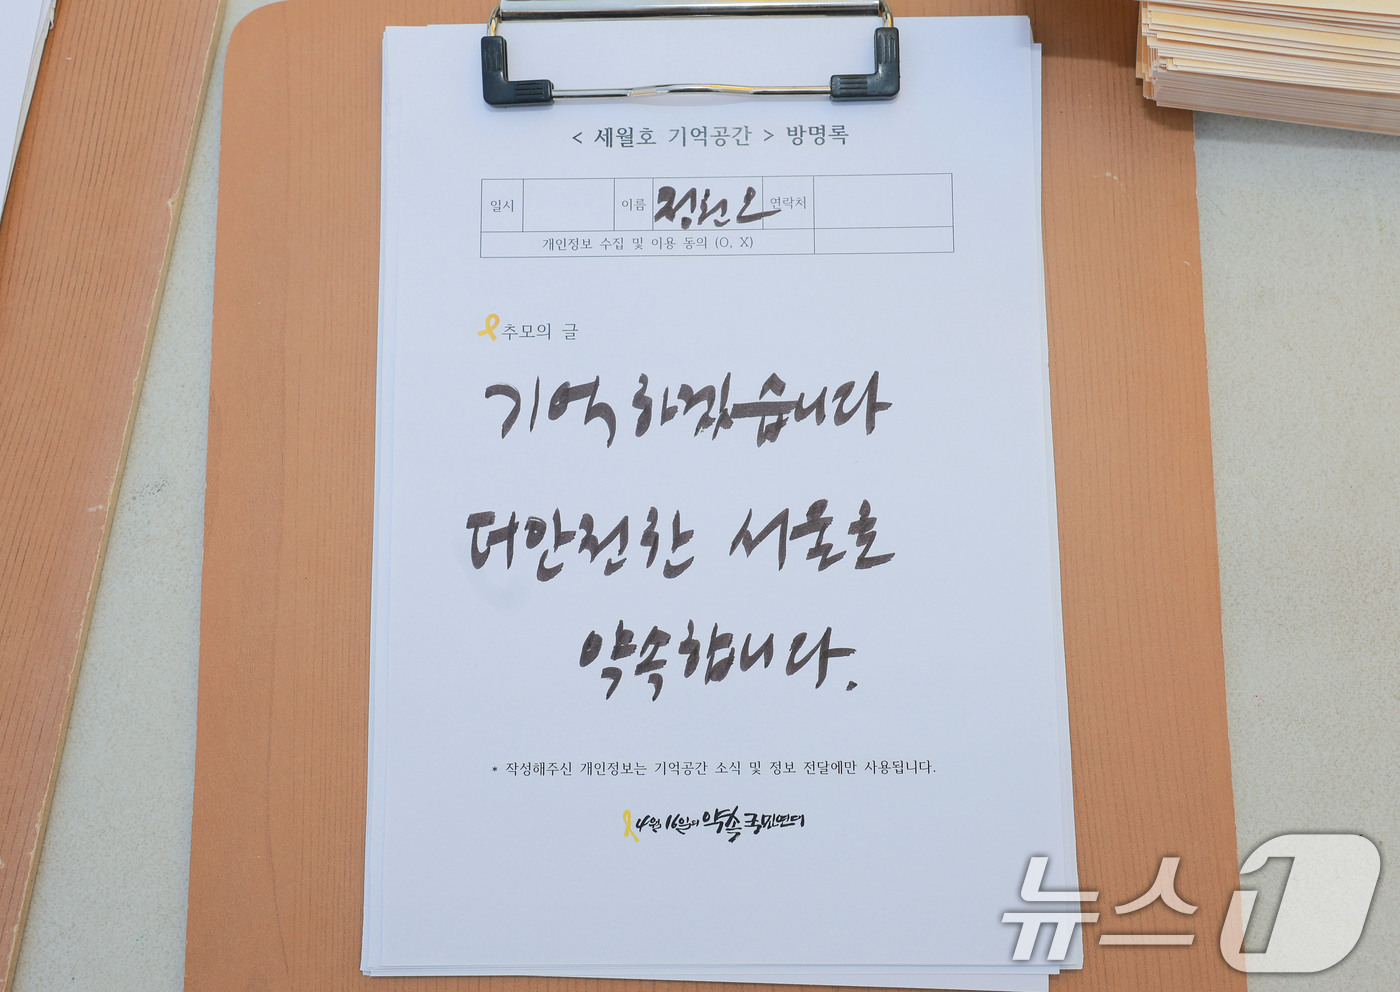 < 세월호 기억공간 > 방명록
일시 이름 정원오 연락처
개인정보 수집 및 이용 동의 (O, X)
추모의 글
기억하겠습니다
더안전한 서울로
약속합니다.
* 작성해주신 개인정보는 기억공간 소식 및 정보 전달에만 사용됩니다.
4월16일의 약속 국민연대
뉴스1